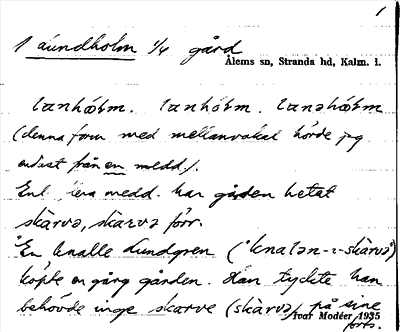 1
1 aundholm 1/4 gård
Ålems sn, Stranda hd, Kalm. l.
(denna form med mellanvokal hörde jag
endast från en medd.).
Enl. flera medd. har gården hetat
skàrvə, skàrvə förr.
En knalle Lundgren (knalən-
köpte en gång gården. Han tyckte han
behövde inge skarve (skàrvə) på sine
Ivar Modéer 1935